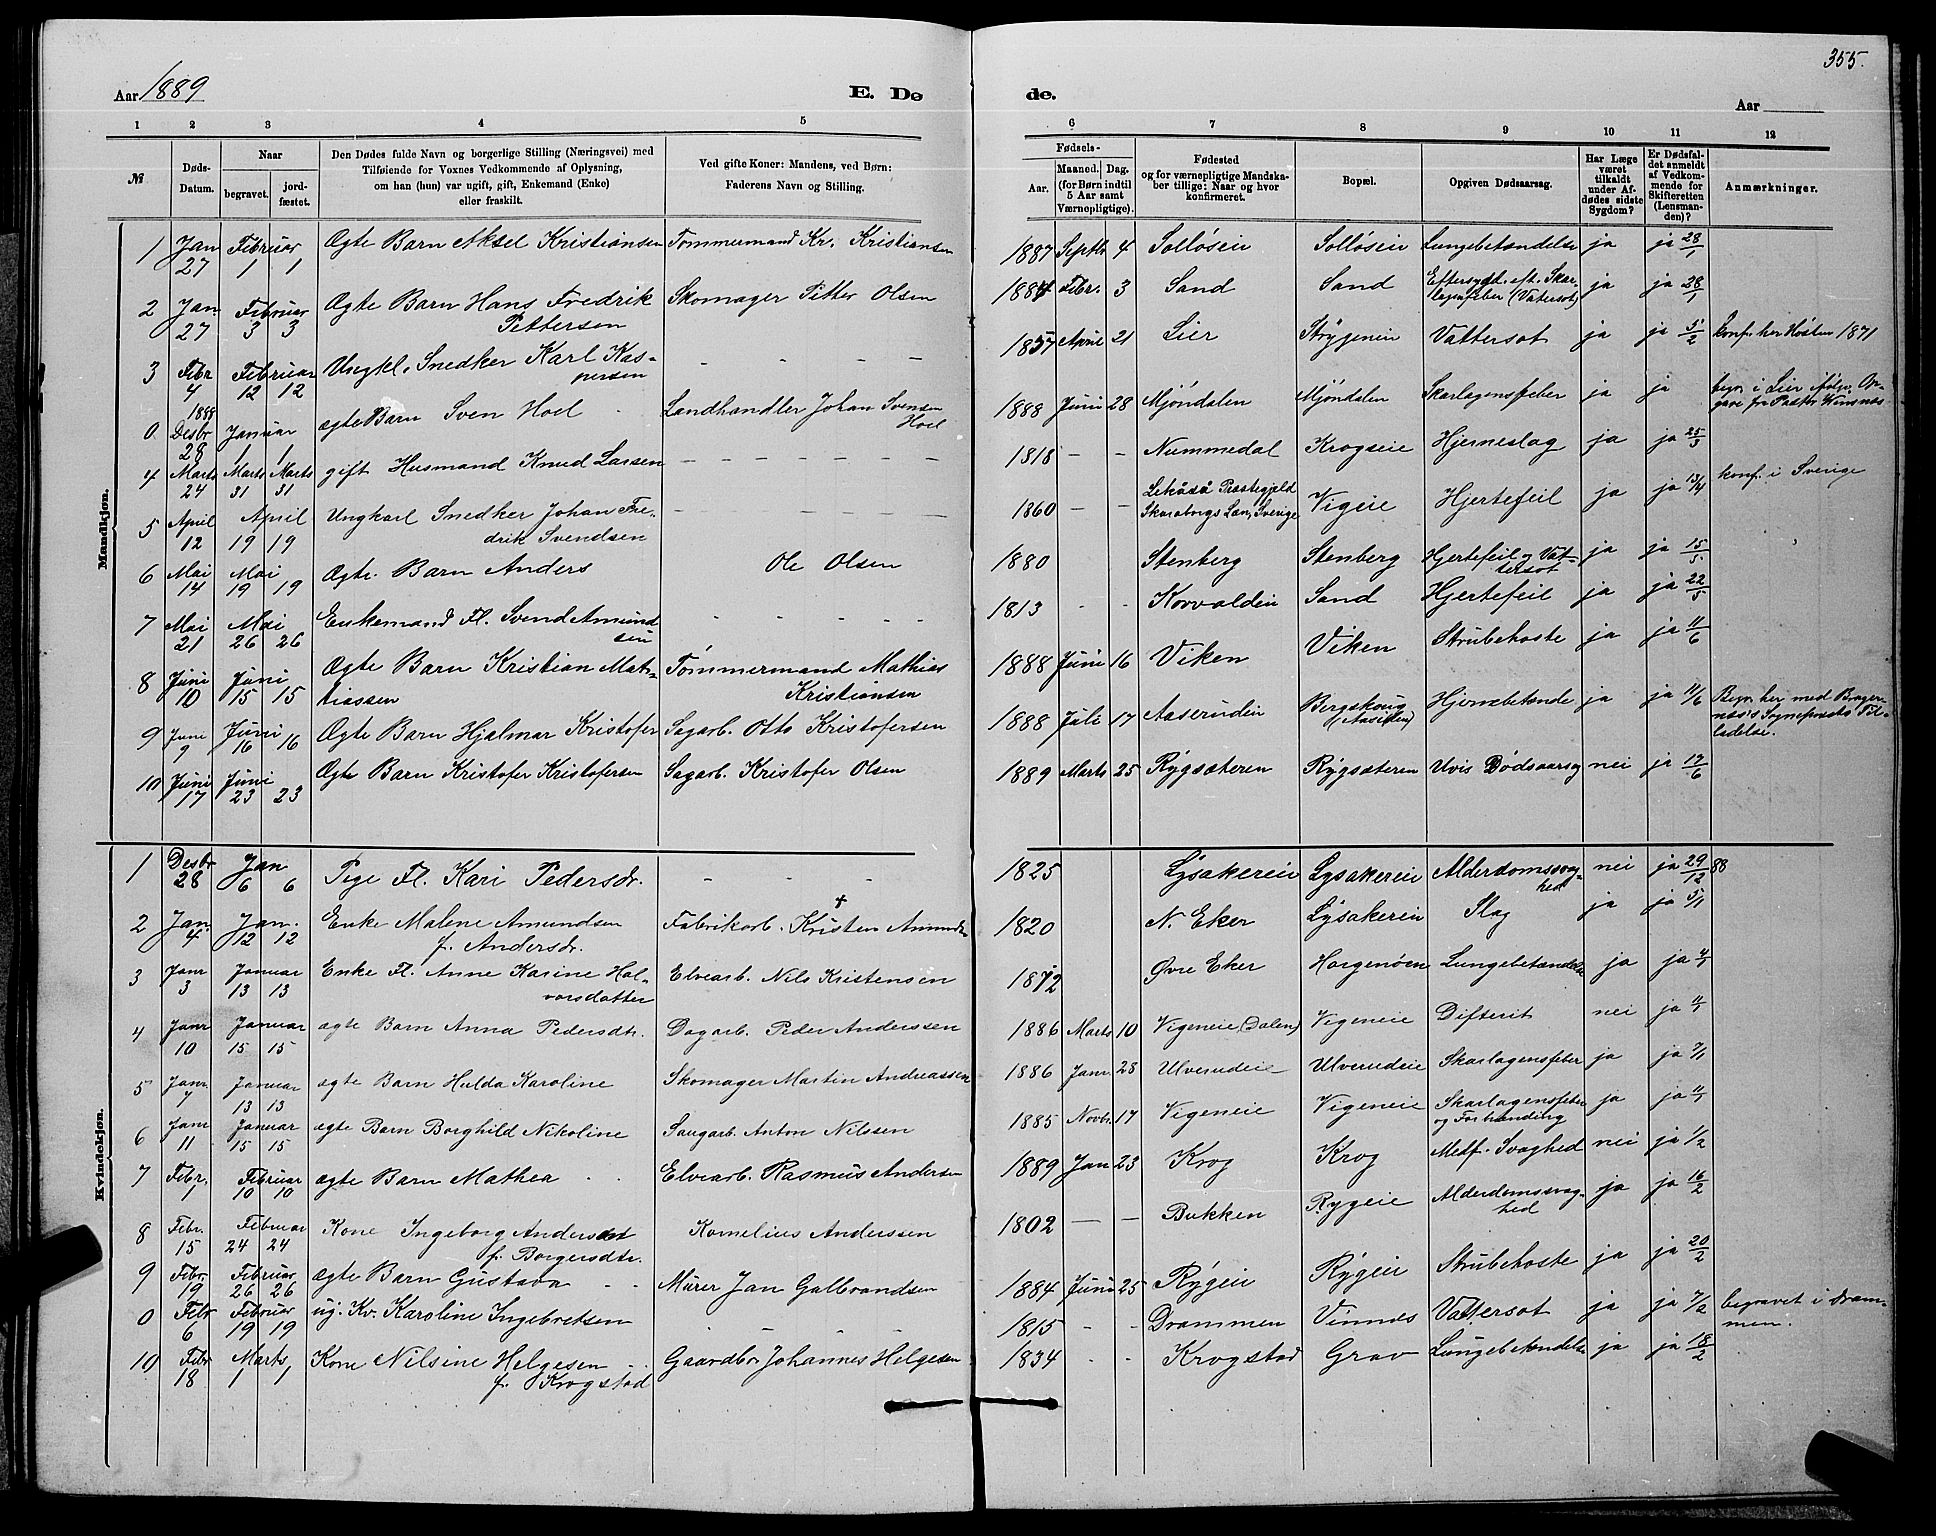 355.
Aar 1889 E. Dø de. Aar
1 2 3 4 5 6 7 8 9 10 11 12
№ Døds-Datum. Naar begravet. jordfæstet. Den Dødes fulde Navn og borgerlige Stilling (Næringsvei) med Tilføiende for Voxnes Vedkommende af Oplysning, om han (hun) var ugift, gift, Enkemand (Enke) eller fraskilt. Ved gifte Koner: Mandens, ved Børn: Faderens Navn og Stilling. Fødsels- Aar. Maaned. Dag. (for Børn indtil 5 Aar samt Værnepligtige). Fødested og for værnepligtige Mandskaber tillige: Naar og hvor konfirmeret. Bopæl. Opgiven Dødsaarsag. Har Læge været tilkaldt under Afdødes sidste Sygdom? Er Dødsfaldet anmeldt af Vedkommende for Skifteretten (Lensmanden)? Anmærkninger.
Mandkjøn.
1 Jan 27 Februar 1 1 Ægte Barn Aksel Kristiansen Tømmermand Kr. Kristiansen 1887 Septbr 4 Solløseie Solløseie Lungebetændelse ja ja 28/1
2 Jan. 27 Februar 3 3 Ægte Barn Hans Fredrik Pettersen Skomager Petter Olsen 1884 Febr. 3 Sand Sand Eftersygd. eft. Skarlagenfeber (Vatersot) ja ja 28/1
3 Febr 4 Februar 12 12 Ungkl. Snedker Karl Kaspersen - - - - 1857 April 21 Lier Strygeneie Vattersot ja ja 5/2 konf. her Høsten 1871
0. 1888 Desbr 28 Januar 1 1 ægte Barn Sven Hoel Landhandler Johan Svensen Hoel 1888 Juni 28 Mjøndalen Mjøndalen Skarlagensfeber ja ja begr. i Lier ifølge Opgave fra Pastor Winsnes
4 Marts 24 Marts 31 Marts 31 gift Husmand Knud Larsen - - - - - - 1818 - - Nummedal Krogseie Hjerneslag ja ja 25/3
5 April 12 April 19 19 Ungkarl Snedker Johan Fredrik Svendsen - - - - - - 1860 - - Lekåså Præstegjeld Skarabrgs Læn, Sverige Vigeie Hjertefeil ja ja 13/4 konf. i Sverige
6 Mai 14 Mai 19 19 Ægte. Barn Anders Ole Olsen 1880 Stenberg Stenberg Hjertefeil og Vattersot ja ja 15/5
7 Mai 21 Mai 26 26 Enkemand Fl. Svend Amundsen - - - - - 1813 - - Korvalden Sand Hjertefeil ja ja 22/5
8 Juni 10 Juni 15 15 Ægte Barn Kristian Mathiassen Tømmermand Mathias Kristiansen 1888 Juni 16 Viken Viken Strubehoste ja ja 11/6
9 June 9 Juni 16 16 Ægte Barn Hjalmar Kristofer Sagarb. Otto Kristofersen 1888 Juli 17 Aaserudein Bergskoug (Aasiden) Hjernebetænde ja ja 11/6 Begr. her med Bragernæs's Sognepræsts Tilladelse.
10 Juni 17 Juni 23 23 Ægte Barn Kristofer Kristofersen Sagarb. Kristofer Olsen 1889 Marts 25 Rygsæteren Rygsæteren Uvis Dødsaarsag nei ja 17/6
Kvindekjøn.
1 Desbr 28 Jan 6 6 Pige Fl. Kari Pedersdr. - - - 1825 Lysakereie Lysakereie Alderdomssvaghed nei ja 29/12 88
2 Jan. 4 Jan. 12 12 Enke Malene Amundsen f. Andersdr. Fabrikarb. Kristen Amundsen + 1820 N. Eker Lysakerein Slag ja ja 5/1
3 Janr 3 Januar 13 13 Enke Fl. Anne Karine Halvorsdatter Elvearb. Nils Kristensen 1812 Øvre Eker Horgenøen Lungebetændelse ja ja 4/1
4 Janr 10 Januar 15 15 ægte Barn Anna Pedersdtr. Dagarb. Peder Anderssen 1886 Marts 10 Vigeneie (Dalen) Vigeneie Difterit nei ja 11/1
5 Janr. 7 Januar 13 13 ægte Barn Hulda Karoline Skomager Martin Andreassen 1886 Janr. 28 Ulverudeie Ulverudeie Skarlagensfeber ja ja 7/1
6 Janr 11 Januar 15 15 ægte Barn Borghild Nikoline Saugarb. Anton Nilssen 1885 Novbr. 17 Vigeneie Vigeneie Skarlagensfeber og Forbrænding ja ja 11/1
7 Febr. 1 Februar 10 10 ægte Barn Mathea - - Elvearb. Rasmus Andersen 1889 Jan 23 Krog Krog Medf. Svaghed nei ja 1/2
8 Febr. 15 Februar 24 24 Kone Ingeborg Anderssen f. Borgersdtr. Kornelius Anderssen 1802 - - Bukken Rygeie Alderdomssvaghed ja ja 16/2
9 Febr. 19 Februar 26 26 ægte Barn Gustava - - Murer Jan Galbrandsen 1884 Juni 25 Rygeie Rygeie Strubehoste ja ja 20/2
0 Febr 6 Februar 19 19 ug. Kv. Karoline Ingebretsen - - - 1815 - - Drammen Vinnes Vattersot ja ja 7/2 begravet i Drammen.
10 Febr 18 Marts 1 1 Kone Nilsine Helgesen f. Krogstad Gaardbr. Johannes Helgesen 1834 - - Krogstad Grav Lungebetændelse ja ja 18/2